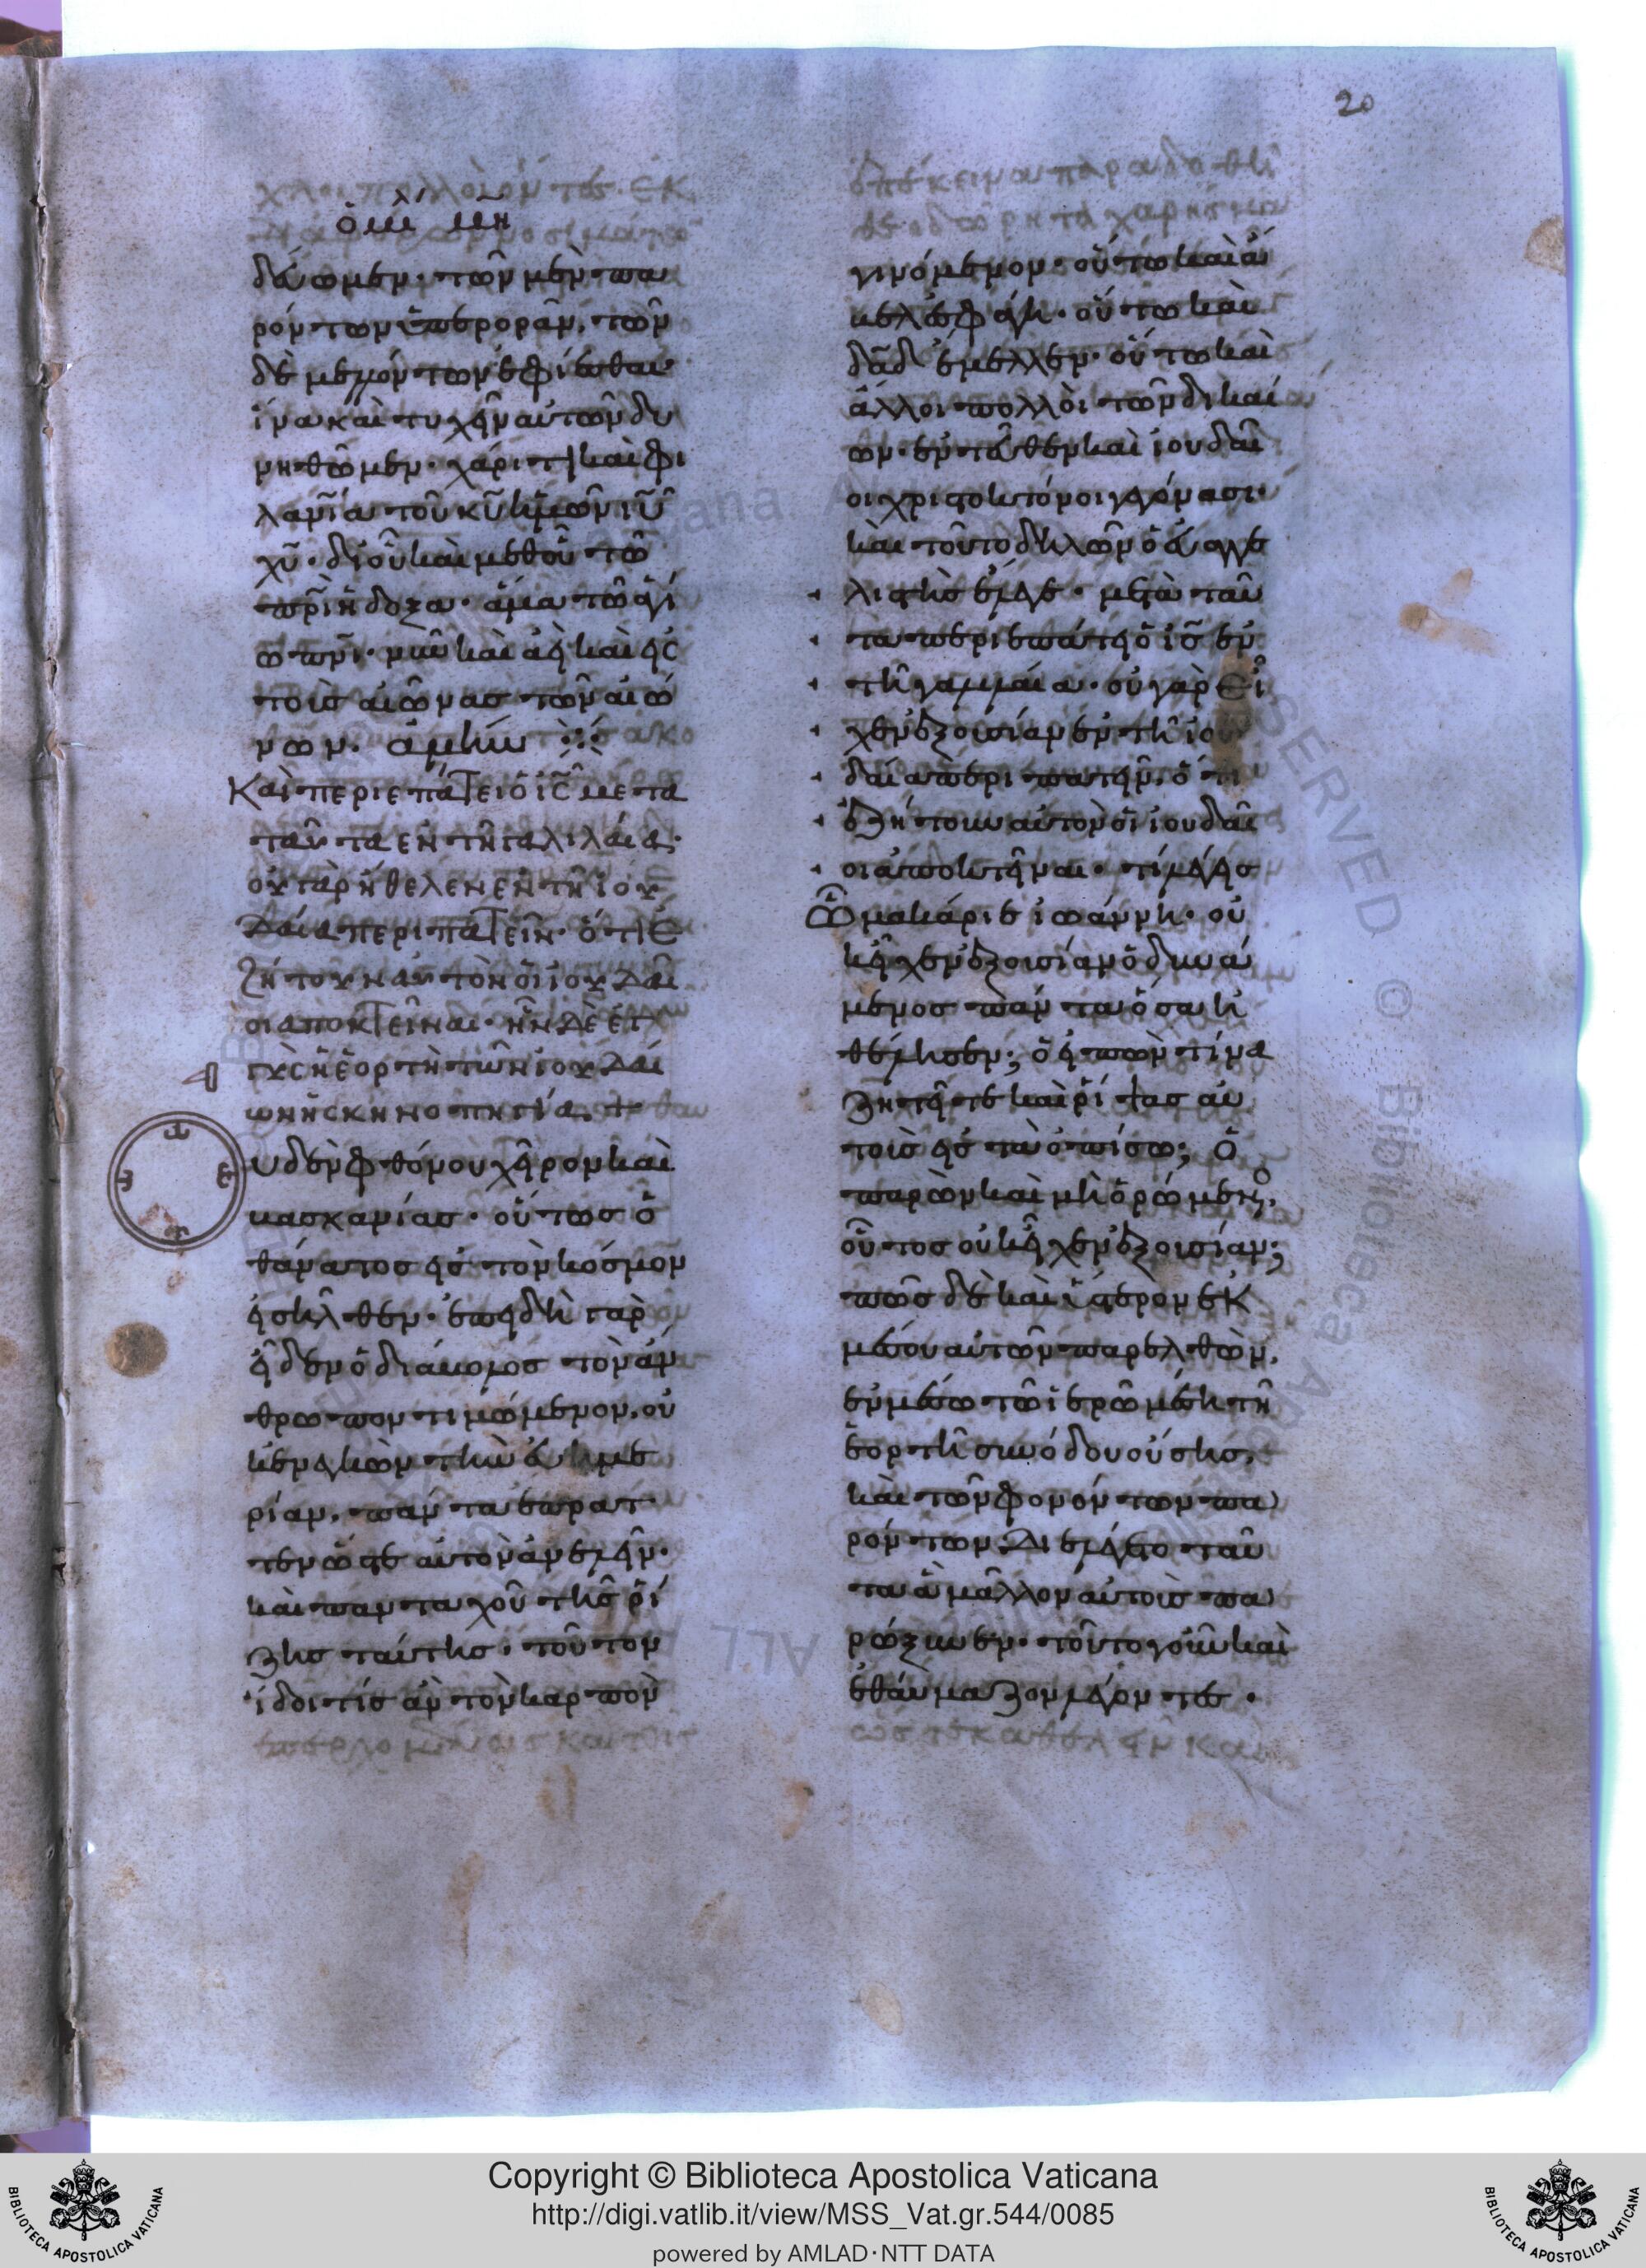 20
ὁμι μη
δεύωμεν· τῶν μὲν πα
ρόντων ὑπερορᾶν, τῶν
δὲ μενόντων ἐφίεσθαι·
ἵνα καὶ τυχεῖν αὐτῶν δυ
νηθῶμεν· χάριτι καὶ φι
λανίᾳ τοῦ κυ ἡμῶν ιυ
χυ· δι' οὗ καὶ μεθ' οὗ τῶ
πρι ἡ δόξα· ἅμα τῶ ἁγί
ω πνι· νῦν καὶ ἀεὶ καὶ εἰς
τοὺς αἰῶνας τῶν αἰώ
νων· ἀμήν
Καὶ περιεπάτει ὁ ις μετὰ
ταῦτα ἐν τῆ γαλιλαία·
οὐ γὰρ ἤθελεν ἐν τῆ ἰου
δαία περιπατεῖν· ὅτι ἐ
ζήτουν αὐτὸν οἱ ἰουδαῖ
οι ἀποκτεῖναι· ἦν δὲ ἐγ
γὺς ἡ ἑορτὴ τῶν ἰουδαί
ων ἡ σκηνοπηγία
υδὲν φθόνου χεῖρον καὶ
βασκανίας· οὕτως ὁ
θάνατος εἰς τὸν κόσμον
εἰσῆλθεν· ἐπειδὴ γὰρ
εἶδεν ὁ διάβολος τὸν ἄν
θρωπον τιμώμενον, οὐκ
ἐνεγκὼν τὴν εὐημε
ρίαν, πάντα ἔπρατ
τεν ὥστε αὐτὸν ἀνελεῖν·
καὶ πανταχοῦ τῆς ῥί
ζης ταύτης· τοῦτον
ἴδοι τίς ἂν τὸν καρπὸν
γινόμενον· οὕτω καὶ ἄ
βελ ἐσφάγη· οὕτω καὶ
δαδ ἔμελλεν· οὕτω καὶ
ἄλλοι πολλοὶ τῶν δικαί
ων· ἐντεῦθεν καὶ ἰουδαῖ
οι χριστοκτόνοι γεγόνασι·
καὶ τοῦτο δηλῶν ὁ εὐαγγε
λιστὴς ἔλεγε· μετὰ ταῦ
τα περιεπάτει ὁ ις ἐν
τῆ γαλιλαία· οὐ γὰρ εἶ
χεν ἐξουσίαν ἐν τῆ ἰου
δαία περιπατεῖν, ὅτι
ἐζήτουν αὐτὸν οἱ ἰουδαῖ
οι ἀποκτεῖναι· τί λέγεις
ὦ μακάριε ἰωάννη· οὐ
κ εἶχεν ἐξουσίαν ὁ δυνά
μενος πάντα ὅσα ἠ
θέλησεν; ὁ εἰπὼν τίνα
ζητεῖτε καὶ ῥίψας αὐ
τοὺς εἰς τὰ ὀπίσω; ὁ
παρὼν καὶ μὴ ὁρώμενος,
οὗτος οὐκ εἶχεν ἐξουσίαν;
πῶς δὲ καὶ ὕστερον ἐκ
μέσου αὐτῶν παρελθὼν,
ἐν μέσω τῶ ἱερῶ μέση τῆ
ἑορτῆ συνόδου οὔσης,
καὶ τῶν φονόντων πα
ρόντων, διελέγετο ταῦ
τα ἃ μᾶλλον αὐτοὺς πα
ρώξυνεν· τοῦτο γοῦν καὶ
ἐθαύμαζον λέγοντες·
Copyright © Biblioteca Apostolica Vaticana
http://digi.vatlib.it/view/MSS_Vat.gr.544/0085
powered by AMLAD·NTT DATA
BIBLIOTECA APOSTOLICA VATICANA
BIBLIOTECA APOSTOLICA VATICANA